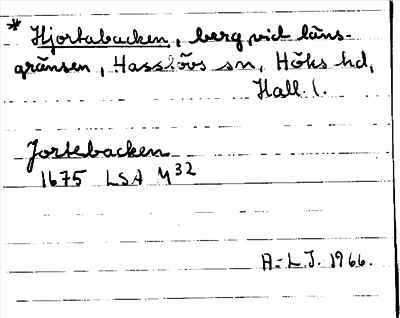 * Hjortabacken, berg vid läns-
gränsen, Hasslövs sn, Höks hd,
Hall. l.
Jortebacken
1675 LSA M32
A-L J. 1966.